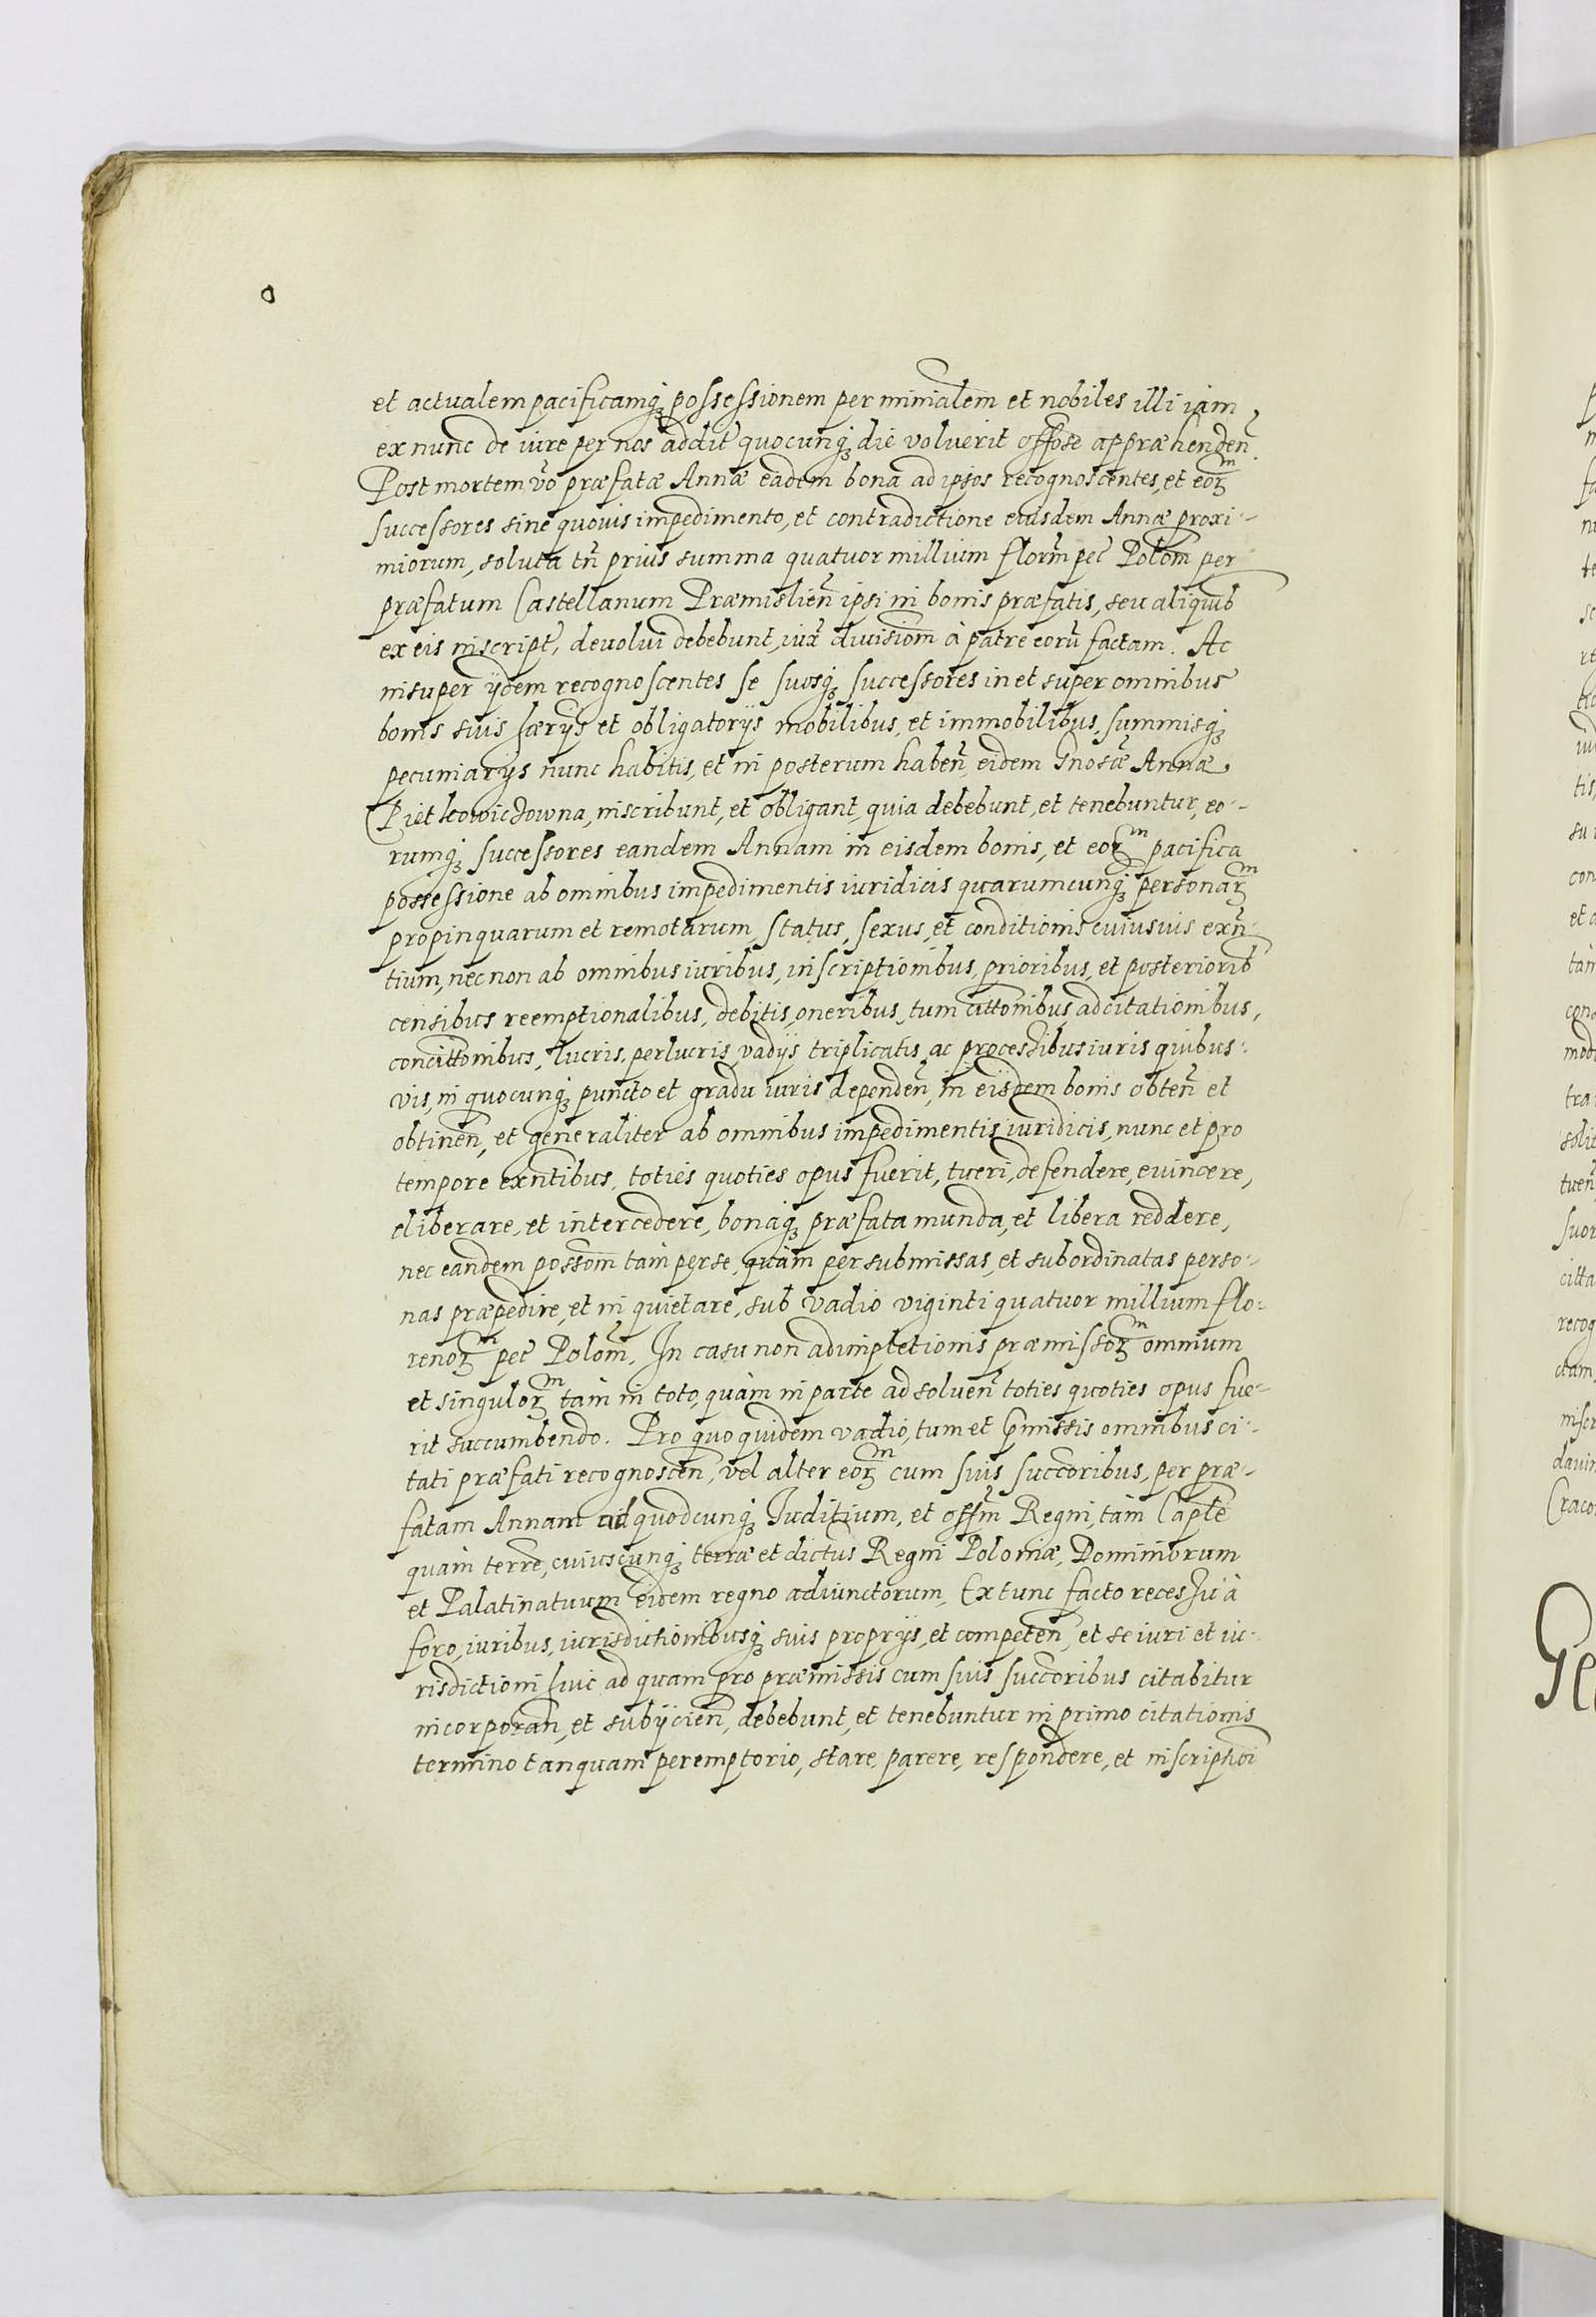 et actualem pacificamq; possessionem per minialem et nobiles illi iam
ex nunc de iure per nos addit quocunq; die voluerit offose appræhenden̄.
Post mortem vō præfatæ Annæ eadem bona ad ipsos recognoscentes, et eoꝝm
successores sine quouis impedimento, et contradictione eiusdem Annæ proxi-
miorum, soluta tn̄ prius summa quatuor millium florm̄ pec Polom̄ per
præfatum Castellanum Præmislien̄ ipsi in bonis præfatis, seu aliquib
ex eis inscript, deuolui debebunt, iux̄ diuisiom̄ à patre eorū factam. Ac
insuper ijdem recognoscentes se suosq; successores in et super omnibus
bonis suis hærijs et obligatorijs mobilibus, et immobilibus, summisq;
pecuniarijs nunc habitis, et in posterum haben̄, eidem Gnosæ Annæ
Pietkowiczowna, inscribunt, et obligant, quia debebunt, et tenebuntur, eo-
rumq; successores eandem Annam in eisdem bonis, et eoꝝm pacifica
possessione ab omnibus impedimentis iuridicis quarumcunq; personaꝝm
propinquarum et remotarum, status, sexus, et conditionis cuiusuis exn̄-
tium, nec non ab omnibus iuribus, inscriptionibus, prioribus, et posteriorib
censibus reemptionalibus, debitis, oneribus, tum cittonibus, adcitationibus,
concittonibus, lucris, perlucris, vadijs triplicatis, ac processibus iuris quibus-
vis, in quocunq; puncto et gradu iuris dependen̄, in eisdem bonis obten̄ et
obtinen̄, et generaliter ab omnibus impedimentis iuridicis, nunc et pro
tempore exntibus, toties quoties opus fuerit, tueri, defendere, euincere,
eliberare, et intercedere, bonaq; præfata munda, et libera reddere,
nec eandem possom̄ tàm per se, quàm per submissas, et subordinatas perso-
nas præpedire, et in quietare, sub vadio viginti quatuor millium flo-
renoꝝm pec Polom̄. In casu non adimpletionis præmissoꝝm omnium
et singuloꝝm tàm in toto, quàm in parte ad soluen̄ toties quoties opus fue-
rit succumbendo. Pro quo quidem vadio, tum et p̄missis omnibus ci-
tati præfati recognoscen̄, vel alter eoꝝm cum suis succoribus, per præ-
fatam Annam ad quodcunq; Iuditium, et offm̄ Regni, tàm Caple
quàm terre, cuiuscunq; terræ et dictus Regni Poloniæ, Dominiorum
et Palatinatuum eidem regno adiunctorum, Ex tunc facto recessu à
foro, iuribus, iurisdictionibusq; suis proprijs, et competen̄, et se iuri et iu-
risdictioni huic ad quam pro præmissis cum suis succoribus citabitur
incorporan̄, et subijcien̄, debebunt, et tenebuntur in primo citationis
termino tanquam peremptorio, stare, parere, respondere, et inscriptioi